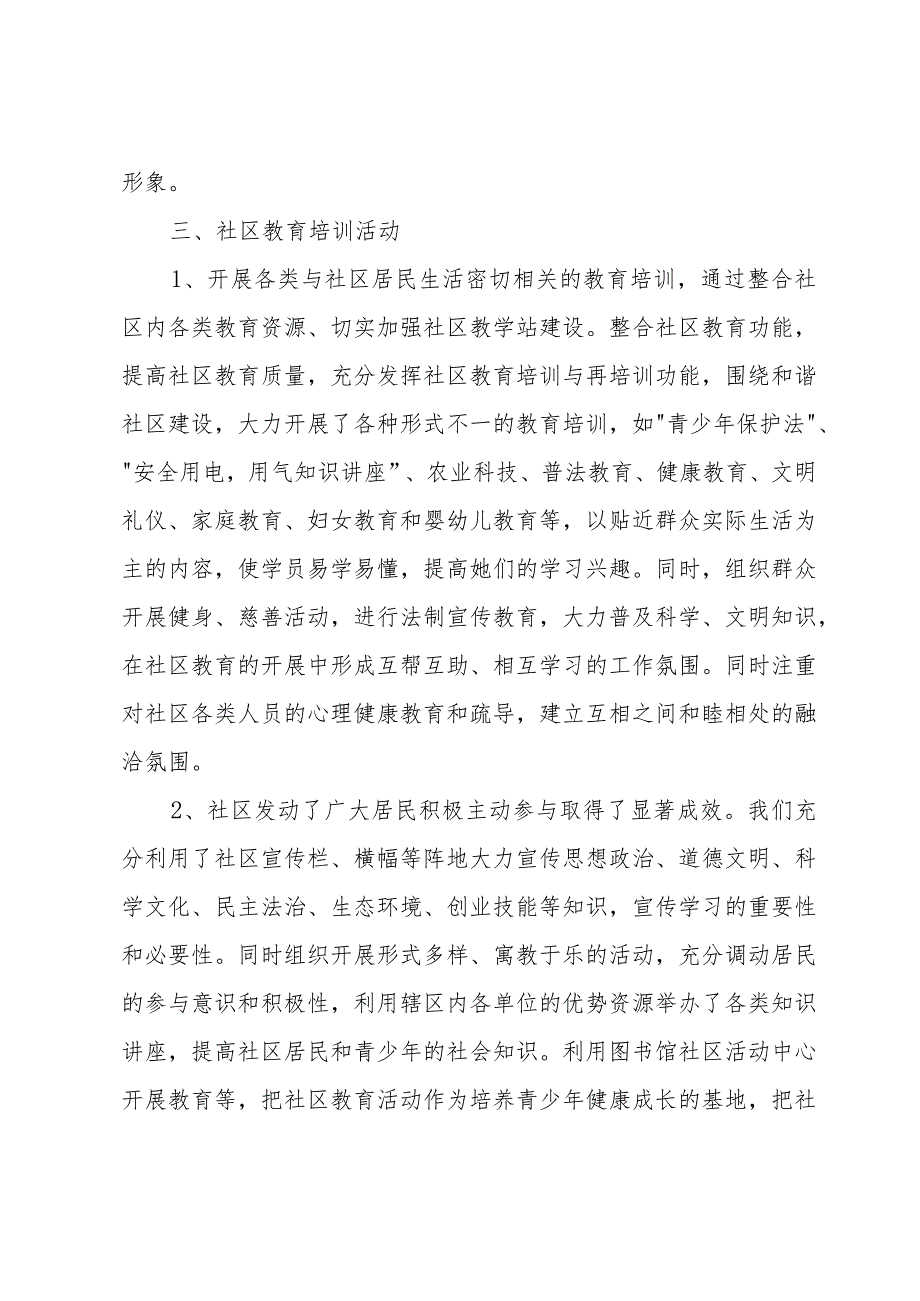 形象。
三、社区教育培训活动
1、开展各类与社区居民生活密切相关的教育培训，通过整合社
区内各类教育资源、切实加强社区教学站建设。整合社区教育功能，
提高社区教育质量，充分发挥社区教育培训与再培训功能，围绕和谐
社区建设，大力开展了各种形式不一的教育培训，如"青少年保护法"、
"安全用电，用气知识讲座”、农业科技、普法教育、健康教育、文明
礼仪、家庭教育、妇女教育和婴幼儿教育等，以贴近群众实际生活为
主的内容，使学员易学易懂，提高她们的学习兴趣。同时，组织群众
开展健身、慈善活动，进行法制宣传教育，大力普及科学、文明知识，
在社区教育的开展中形成互帮互助、相互学习的工作氛围。同时注重
对社区各类人员的心理健康教育和疏导，建立互相之间和睦相处的融
洽氛围。
2、社区发动了广大居民积极主动参与取得了显著成效。我们充
分利用了社区宣传栏、横幅等阵地大力宣传思想政治、道德文明、科
学文化、民主法治、生态环境、创业技能等知识，宣传学习的重要性
和必要性。同时组织开展形式多样、寓教于乐的活动，充分调动居民
的参与意识和积极性，利用辖区内各单位的优势资源举办了各类知识
讲座，提高社区居民和青少年的社会知识。利用图书馆社区活动中心
开展教育等，把社区教育活动作为培养青少年健康成长的基地，把社